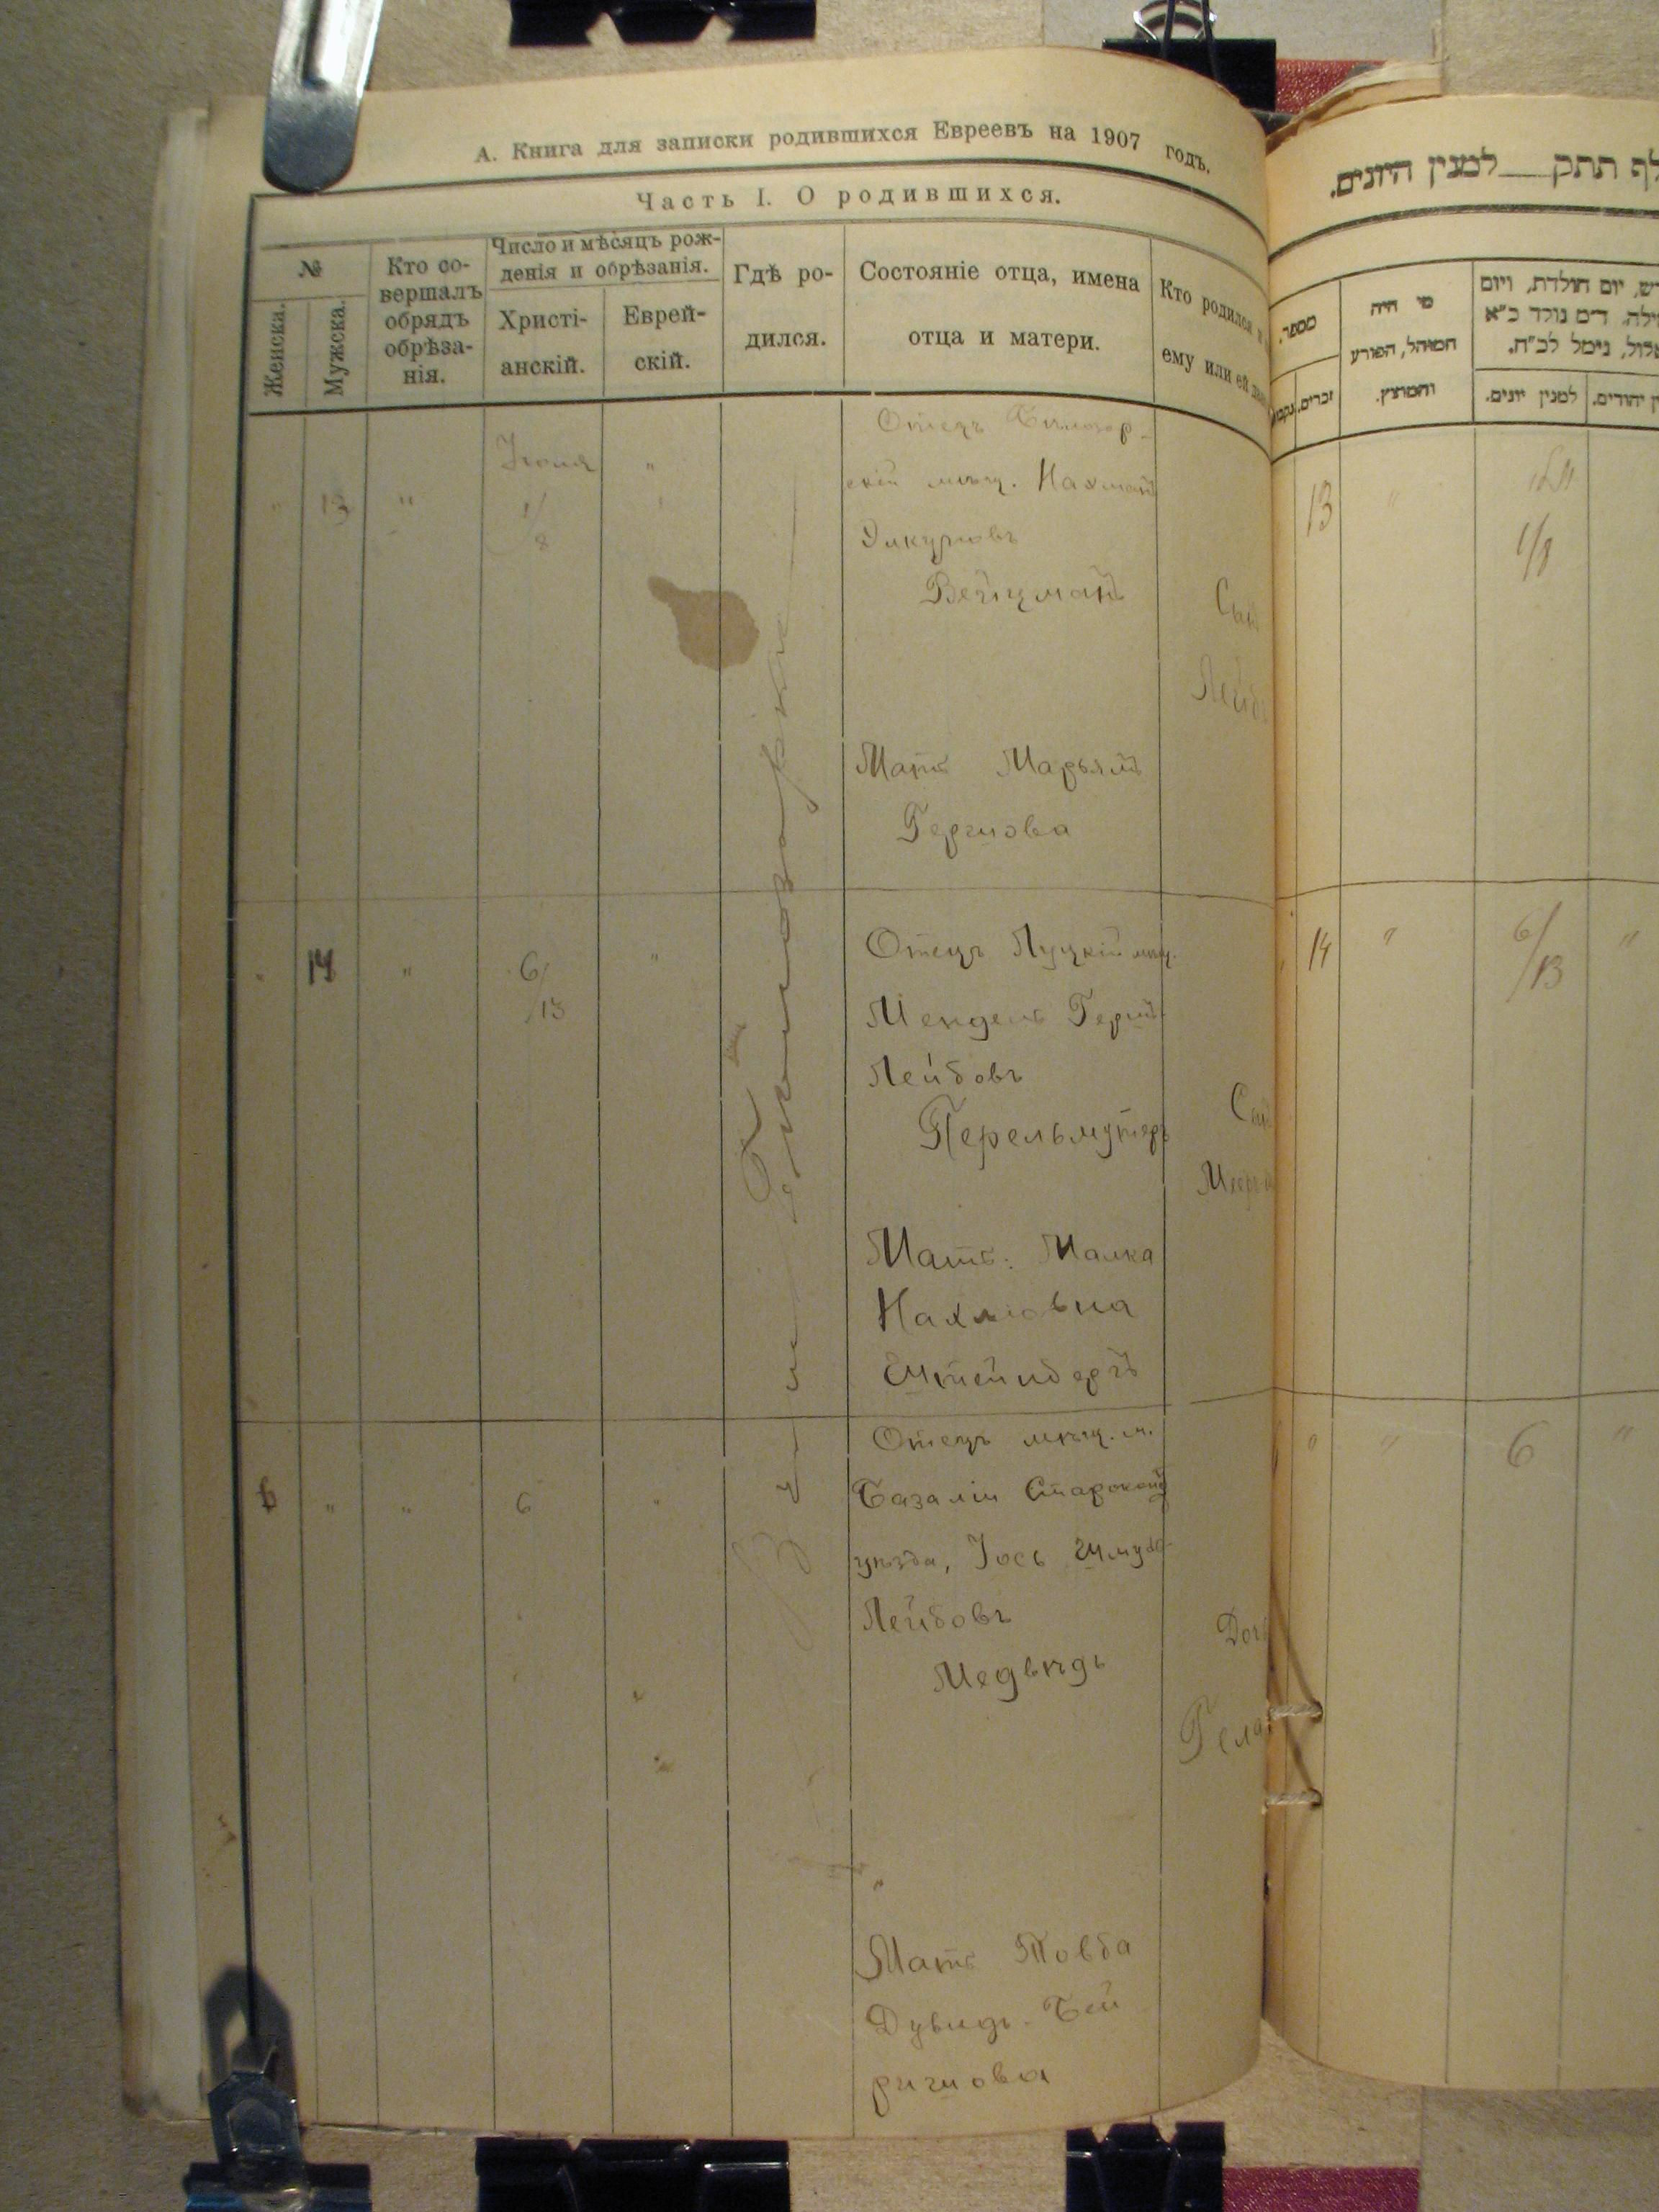 А. Книга для записки родившихся Евреевъ на 1907 годъ.
Часть I. О родившихся.
№
Женска.
Мужска.
Кто со-
вершалъ
обрядъ
обрѣза-
нія.
Число и мѣсяцъ рож-
денія и обрѣзанія.
Христі-
анскій.
Еврей-
скій.
Гдѣ ро-
дился.
Состояніе отца, имена
отца и матери.
Кто родился и
ему или ей
" 13 " Іюля 1/8 "
Отецъ
скій мѣщ. Нахманъ
Вейцманъ
Сынъ
Лейбъ
Мать Марьямъ
Гершова
" 14 " 6/13 "
Отецъ Луцкій мѣщ.
Мендель Гершъ
Лейбовъ
Перельмутеръ
Сынъ
Мать: Малка
Нахмовна
Штейнбергъ
6 " " 6 "
Отецъ мѣщ. м.
Базаліи Староконст
уѣзда, Іось Шмуль
Лейбовъ
Медвѣдь
Дочь
Мать Товба
Дувидъ-Бей
ришова
למנין היונים.
מספר.
זכרים.
מי היה
המוהל, הפורע
והמוצץ.
יום הולדת, ויום
למנין יונים.
13 " 1/8
14 " 6/13 "
" " 6 "